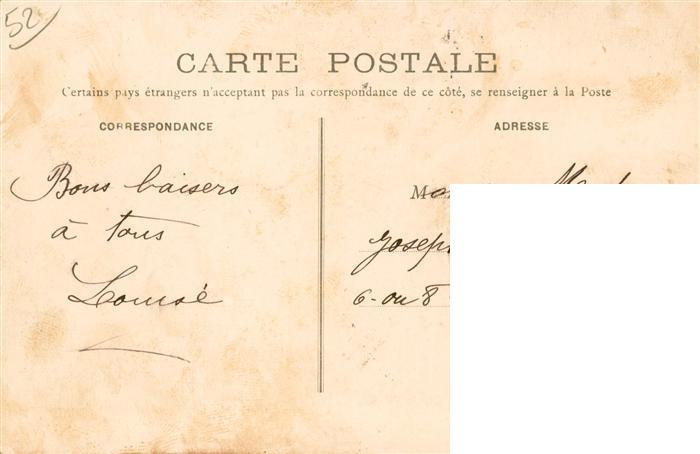 52
CARTE POSTALE
Certains pays étrangers n'acceptant pas la correspondance de ce côté, se renseigner à la Poste
CORRESPONDANCE
Bons baisers
à tous
Louisé
ADRESSE
6 - ou 8